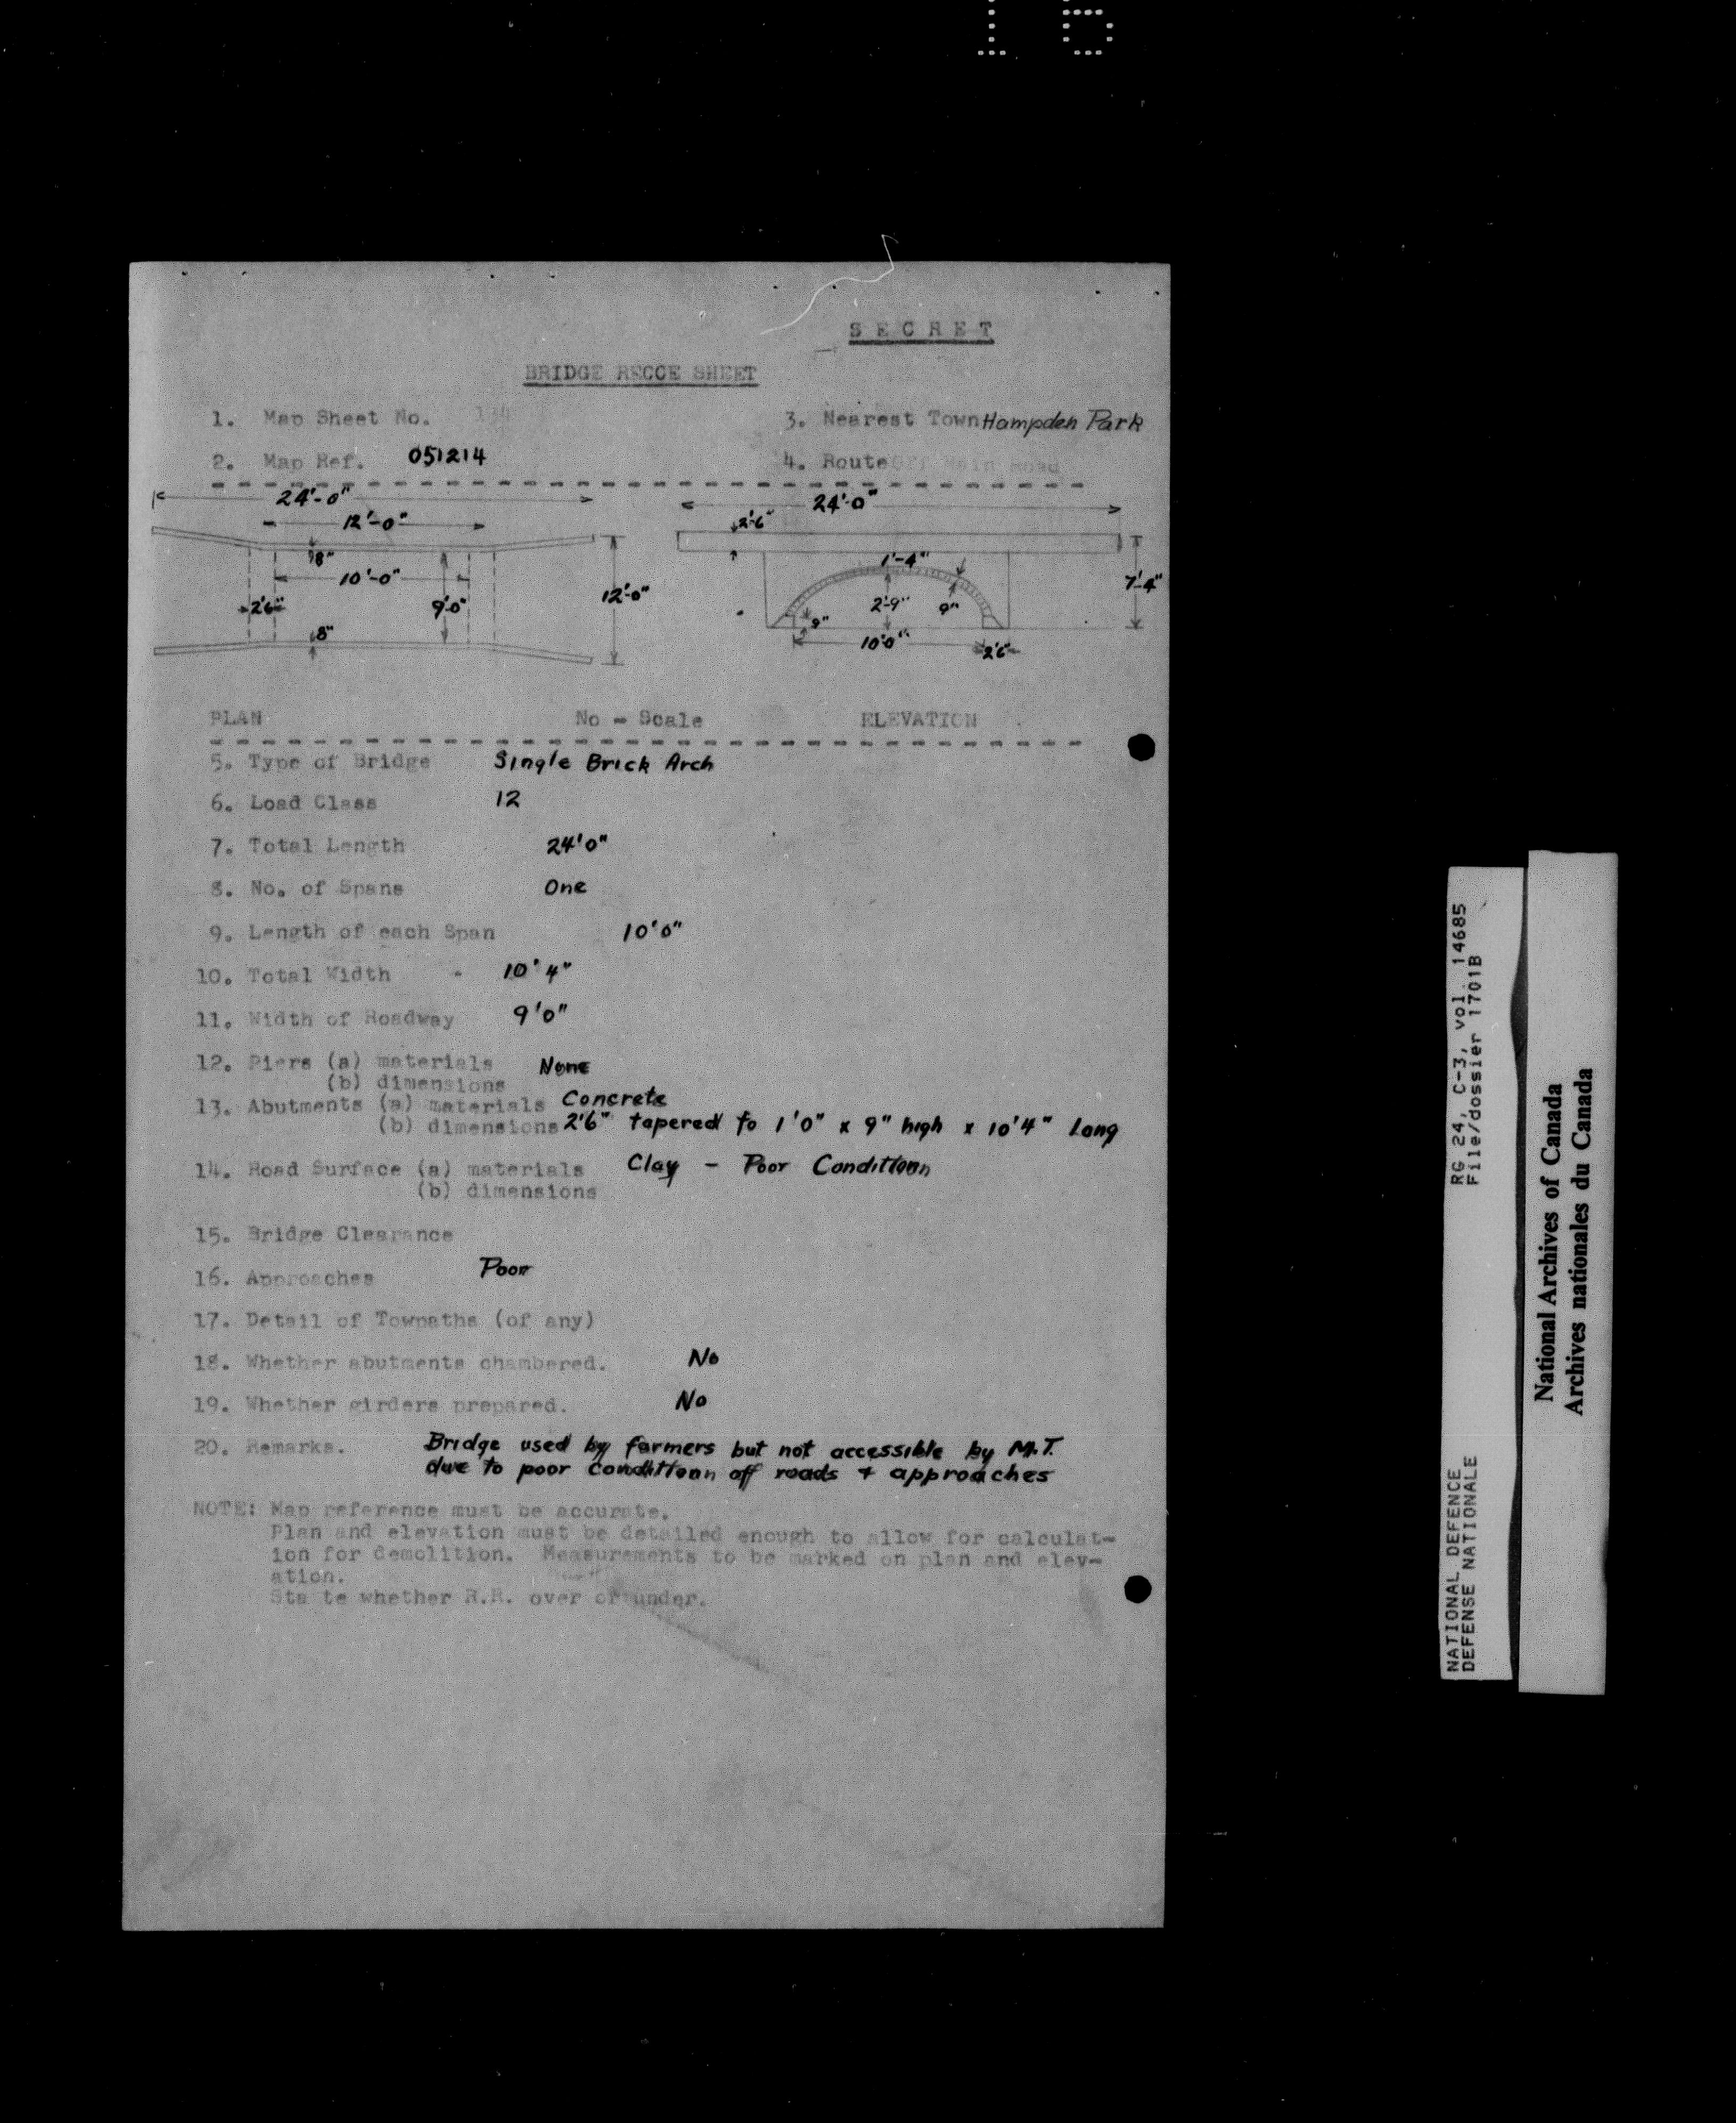 16
S E C R E T
BRIDGE RECCE SHEET
1. Map Sheet No. 134
3. Nearest Town Hampden Park
2. Map Ref. 051214
4. Route Off Main Road
24'-0"
12'-0"
8"
10'-0"
2'6"
9'0"
12'-0"
8"
24'-0"
2'6"
1'-4"
7'-4"
2'-9"
9"
9"
10'0"
2'6"
PLAN No - Scale ELEVATION
5. Type of Bridge Single Brick Arch
6. Load Class 12
7. Total Length 24'0"
8. No. of Spans One
9. Length of each Span 10'0"
10. Total Width - 10'4"
11. Width of Roadway 9'0"
12. Piers (a) materials None
(b) dimensions
13. Abutments (a) materials Concrete
(b) dimensions 2'6" tapered to 1'0" x 9" high x 10'4" Long
14. Road Surface (a) materials Clay - Poor Conditionn
(b) dimensions
15. Bridge Clearance
16. Approaches Poor
17. Detail of Towpaths (of any)
18. Whether abutments chambered. No
19. Whether girders prepared. No
20. Remarks. Bridge used by farmers but not accessible by M.T.
due to poor conditionn off roads + approaches
NOTE: Map reference must be accurate.
Plan and elevation must be detailed enough to allow for calculat-
ion for demolition. Measurements to be marked on plan and elev-
ation.
Sta te whether R.R. over or under.
NATIONAL DEFENCE RG 24, C-3, vol. 14685
DEFENSE NATIONALE File/dossier 1701B
National Archives of Canada
Archives nationales du Canada